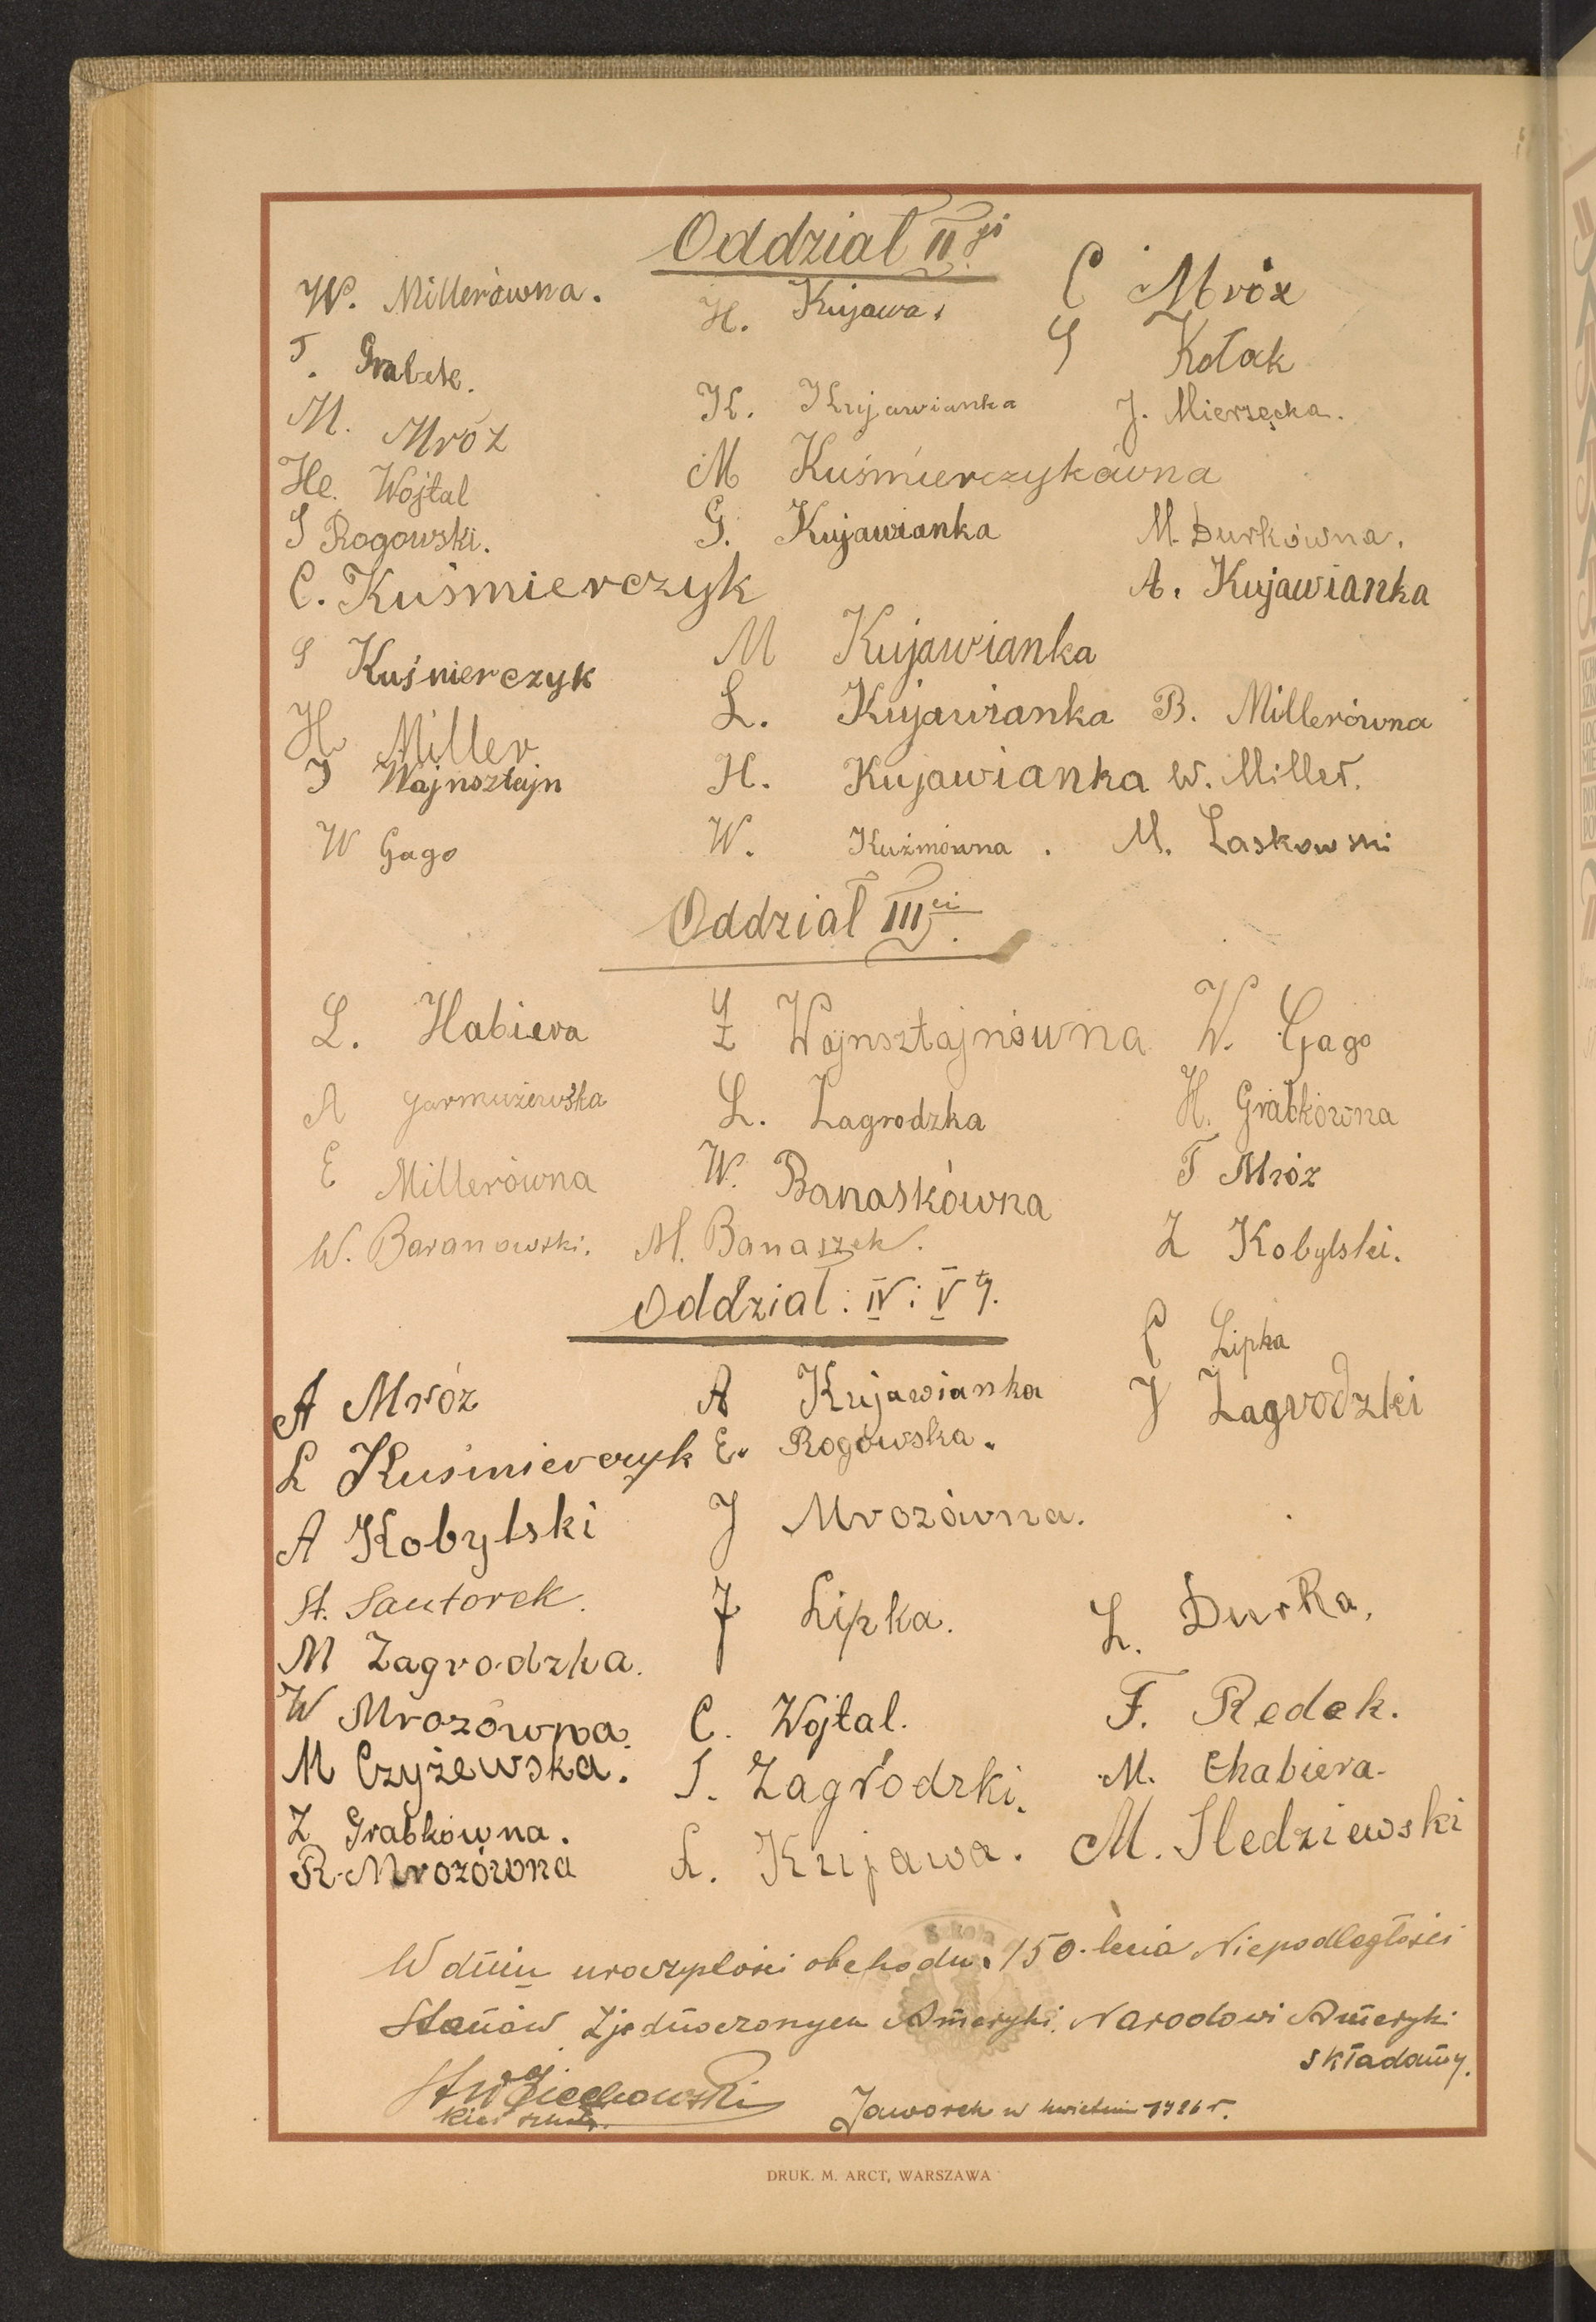 Oddział II gi
W. Millerówna. H. Kujawa. C Mróz
T. Grabek. S Kołak
M. Mróz K. Kujawianka J. Mierzęcka.
He. Wojtal M Kuśmierczykówna
S Rogowski. G. Kujawianka M. Durkówna.
C. Kuśmierczyk A. Kujawianka
S Kuśmierczyk M Kujawianka
H. Miller L. Kujawianka B. Millerówna
I Wajnsztejn H. Kujawianka W. Miller.
W Gago W. Kuźmówna. M. Laskowski
Oddział III ci.
L. Habiera Z Wajnsztajnówna W. Gago
A Garmużewska L. Zagrodzka H. Grabkówna
E Millerówna W. Banaskówna T Mróz
W. Baranowski. M. Banaszek. Z Kobylski.
Oddział: IV: V ty.
C Lipka
A Mróz A Kujawianka J Zagrodzki
L Kuśmierczyk E. Rogowska.
A Kobylski J Mrozówna.
St. Sautorek. J Lipka. L. Durka.
M Zagrodzka.
W Mrozówna. C. Wojtal. F. Redek.
M Czyżewska. S. Zagrodzki. M. Chabiera.
Z Grabkówna.
R. Mrozówna L. Kujawa. M. Sledziewski
W dniu uroczystości obchodu 150-lecia Niepodległości
Stanów Zjednoczonych Ameryki. Narodowi Ameryki
składamy.
Kier szkoły. Jaworek w kwietniu 1926 r.
DRUK. M. ARCT, WARSZAWA